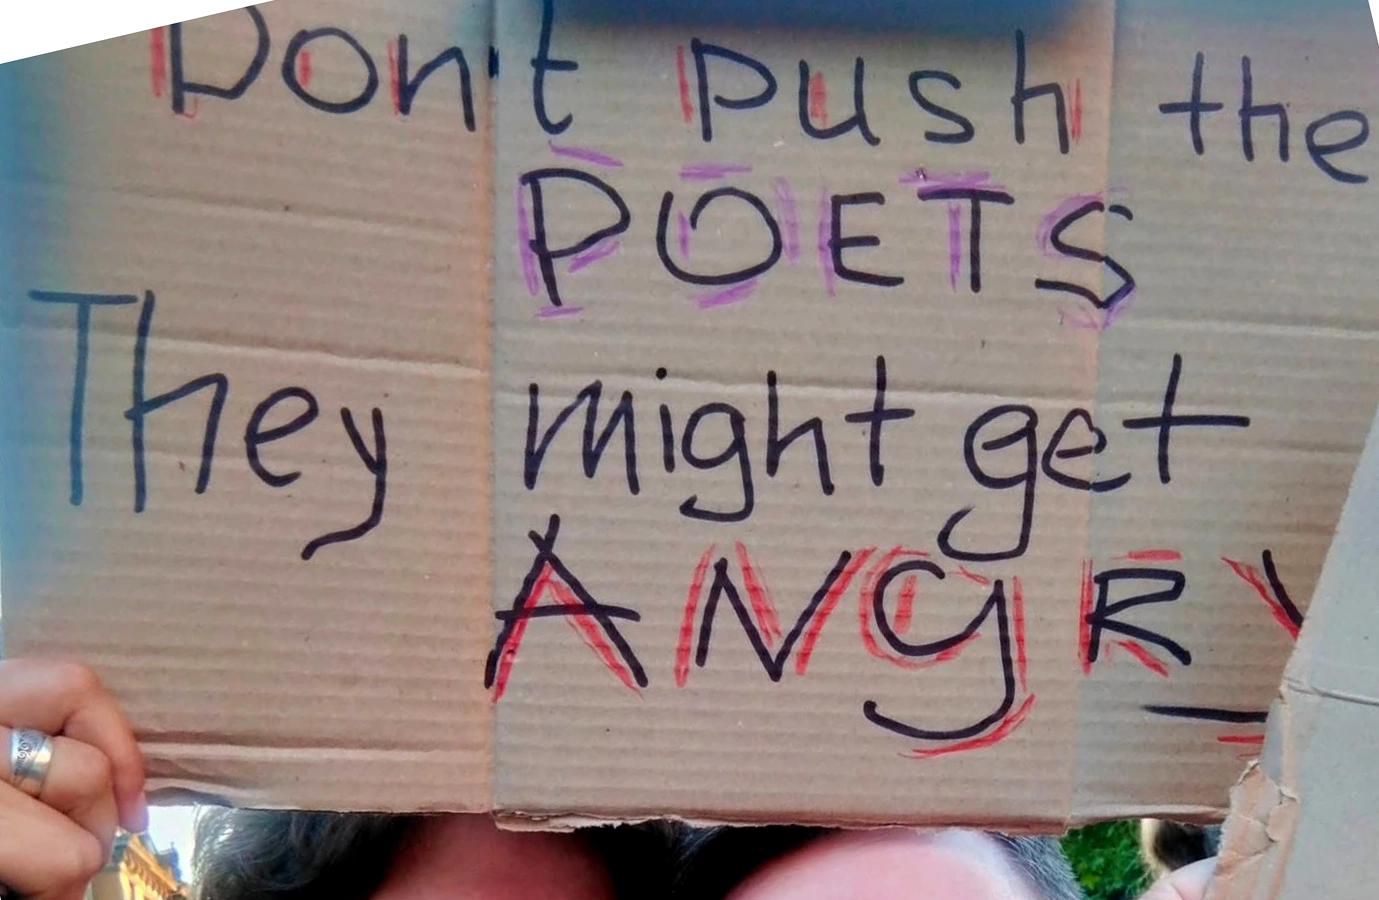 Don't push the
POETS
They might get
ANGRY